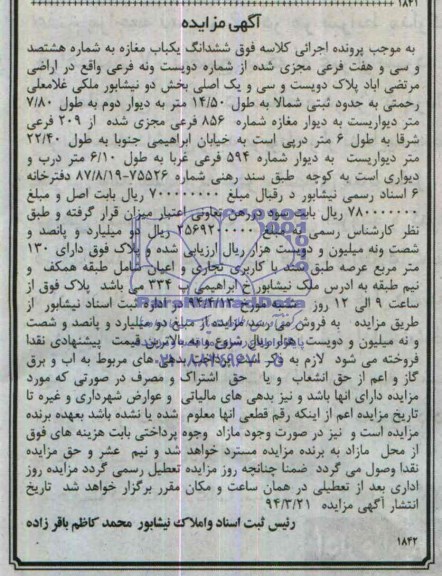 ۱۸۴۱
آگهی مزایده
به موجب پرونده اجرائی کلاسه فوق ششدانگ یکباب مغازه به شماره هشتصد
و سی و هفت فرعی مجزی شده از شماره دویست ونه فرعی واقع در اراضی
مرتضی اباد پلاک دویست و سی و یک اصلی بخش دو نیشابور ملکی غلامعلی
رحمتی به حدود ثبتی شمالا به طول ۱۴/۵۰ متر به دیوار دوم به طول ۷/۸۰
متر دیواریست به دیوار مغازه شماره ۸۵۶ فرعی مجزی شده از ۲۰۹ فرعی
شرقا به طول ۶ متر دریی است به خیابان ابراهیمی جنوبا به طول ۲۲/۴۰
متر دیواریست به دیوار شماره ۵۹۴ فرعی غربا به طول ۶/۱۰ متر درب و
دیواری است به کوچه طبق سند رهنی شماره ۷۵۵۲۶-۸۷/۸/۱۹ دفترخانه
۶ اسناد رسمی نیشابور د رقبال مبلغ ۷۰۰۰۰۰۰۰۰ ریال بابت اصل و مبلغ
۷۸۰۰۰۰۰۰۰ ریال بابت سود در رهن تعاونی اعتبار میزان قرار گرفته و طبق
نظر کارشناس رسمی به مبلغ ۲۵۶۹۲۰۰۰۰۰ ریال دو میلیارد و پانصد و
شصت ونه میلیون و دویست هزار ریال ارزیابی شده و پلاک فوق دارای ۱۳۰
متر مربع عرصه طبق سند با کاربری تجاری و اعیان شامل طبقه همکف و
نیم طبقه به ادرس ملک نیشابور خ ابراهیمی پ ۳۳۴ می باشد پلاک فوق از
ساعت ۹ الی ۱۲ روز شنبه مورخ ۹۴/۴/۱۳ در اداره ثبت اسناد نیشابور از
طریق مزایده به فروش می رسد مزایده از مبلغ دو میلیارد و پانصد و شصت
و نه میلیون و دویست هزار ریال شروع و به بالاترین قیمت پیشنهادی نقدا
فروخته می شود لازم به ذکر است پرداخت بدهی های مربوط به اب و برق
گاز و اعم از حق انشعاب و یا حق اشتراک و مصرف در صورتی که مورد
مزایده دارای انها باشد و نیز بدهی های مالیاتی و عوارض شهرداری و غیره تا
تاریخ مزایده اعم از اینکه رقم قطعی انها معلوم شده یا نشده باشد بعهده برنده
مزایده است و نیز در صورت وجود مازاد وجوه پرداختی بابت هزینه های فوق
از محل مازاد به برنده مزایده مسترد خواهد شد و نیم عشر و حق مزایده
نقدا وصول می گردد ضمنا چنانچه روز مزایده تعطیل رسمی گردد مزایده روز
اداری بعد از تعطیلی در همان ساعت و مکان مقرر برگزار خواهد شد تاریخ
انتشار آگهی مزایده ۹۴/۳/۲۱
رئیس ثبت اسناد واملاک نیشابور محمد کاظم باقر زاده
۱۸۴۲